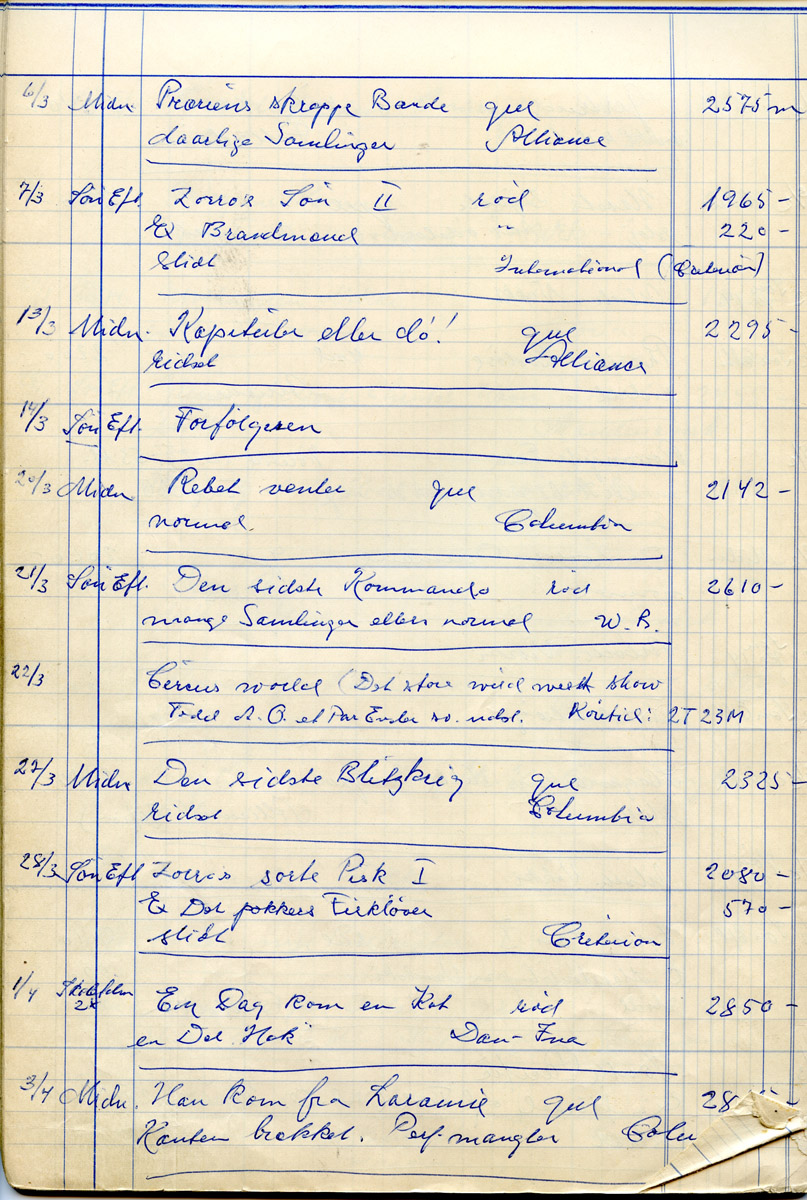 6/3 Midn. Præriens skrappe Bande gul 2575 m
daarlige Samlinger Alliance
7/3 Søn Eft. Zorro's Søn II rød 1965 -
Ex Brandmand " 220 -
slidt International (Criterion)
13/3 Midn. Kapitulér eller dø! gul 2295 -
ridset Alliance
14/3 Søn Eft. Forfølgeren
20/3 Midn Rebet venter gul 2142 -
normal. Columbia
21/3 Søn Eft. Den sidste Kommando rød 2610 -
mange Samlinger ellers normal W.B.
22/3 Circus world (Det store wild west show
Todd A.O. et Par Ender so. udst. Køretid: 2T 23M
27/3 Midn Den sidste Blitzkrieg gul 2325 -
ridset Columbia
28/3 Søn Eft Zorros sorte Pisk I 2080 -
Ex Det pokkers Firkløver 570 -
slidt Criterion
1/4 2x En Dag kom en Kat rød 2850 -
en Del "Hak" Dan-Ina
3/4 Midn. Han kom fra Laramie gul 28
Kanten brækket. Perf. mangler Colu